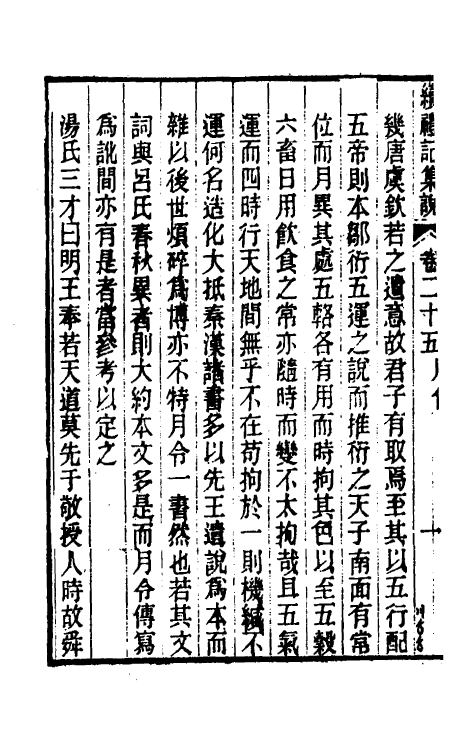 續禮記集說 卷二十五 月令 一
幾唐虞欽若之遺意故君子有取焉至其以五行配
五帝則本鄒衍五運之說而推衍之天子南面有常
位而月異其處五輅各有用而時拘其色以至五穀
六畜日用飲食之常亦隨時而變不太拘哉且五氣
運而四時行天地間無乎不在苟拘於一則機緘不
運何名造化大抵秦漢諸書多以先王遺說為本而
雜以後世煩碎為博亦不特月令一書然也若其文
詞與呂氏春秋異者則大約本文多是而月令傳寫
為訛間亦有是者當參考以定之
湯氏三才曰明王奉若天道莫先于敬授人時故舜